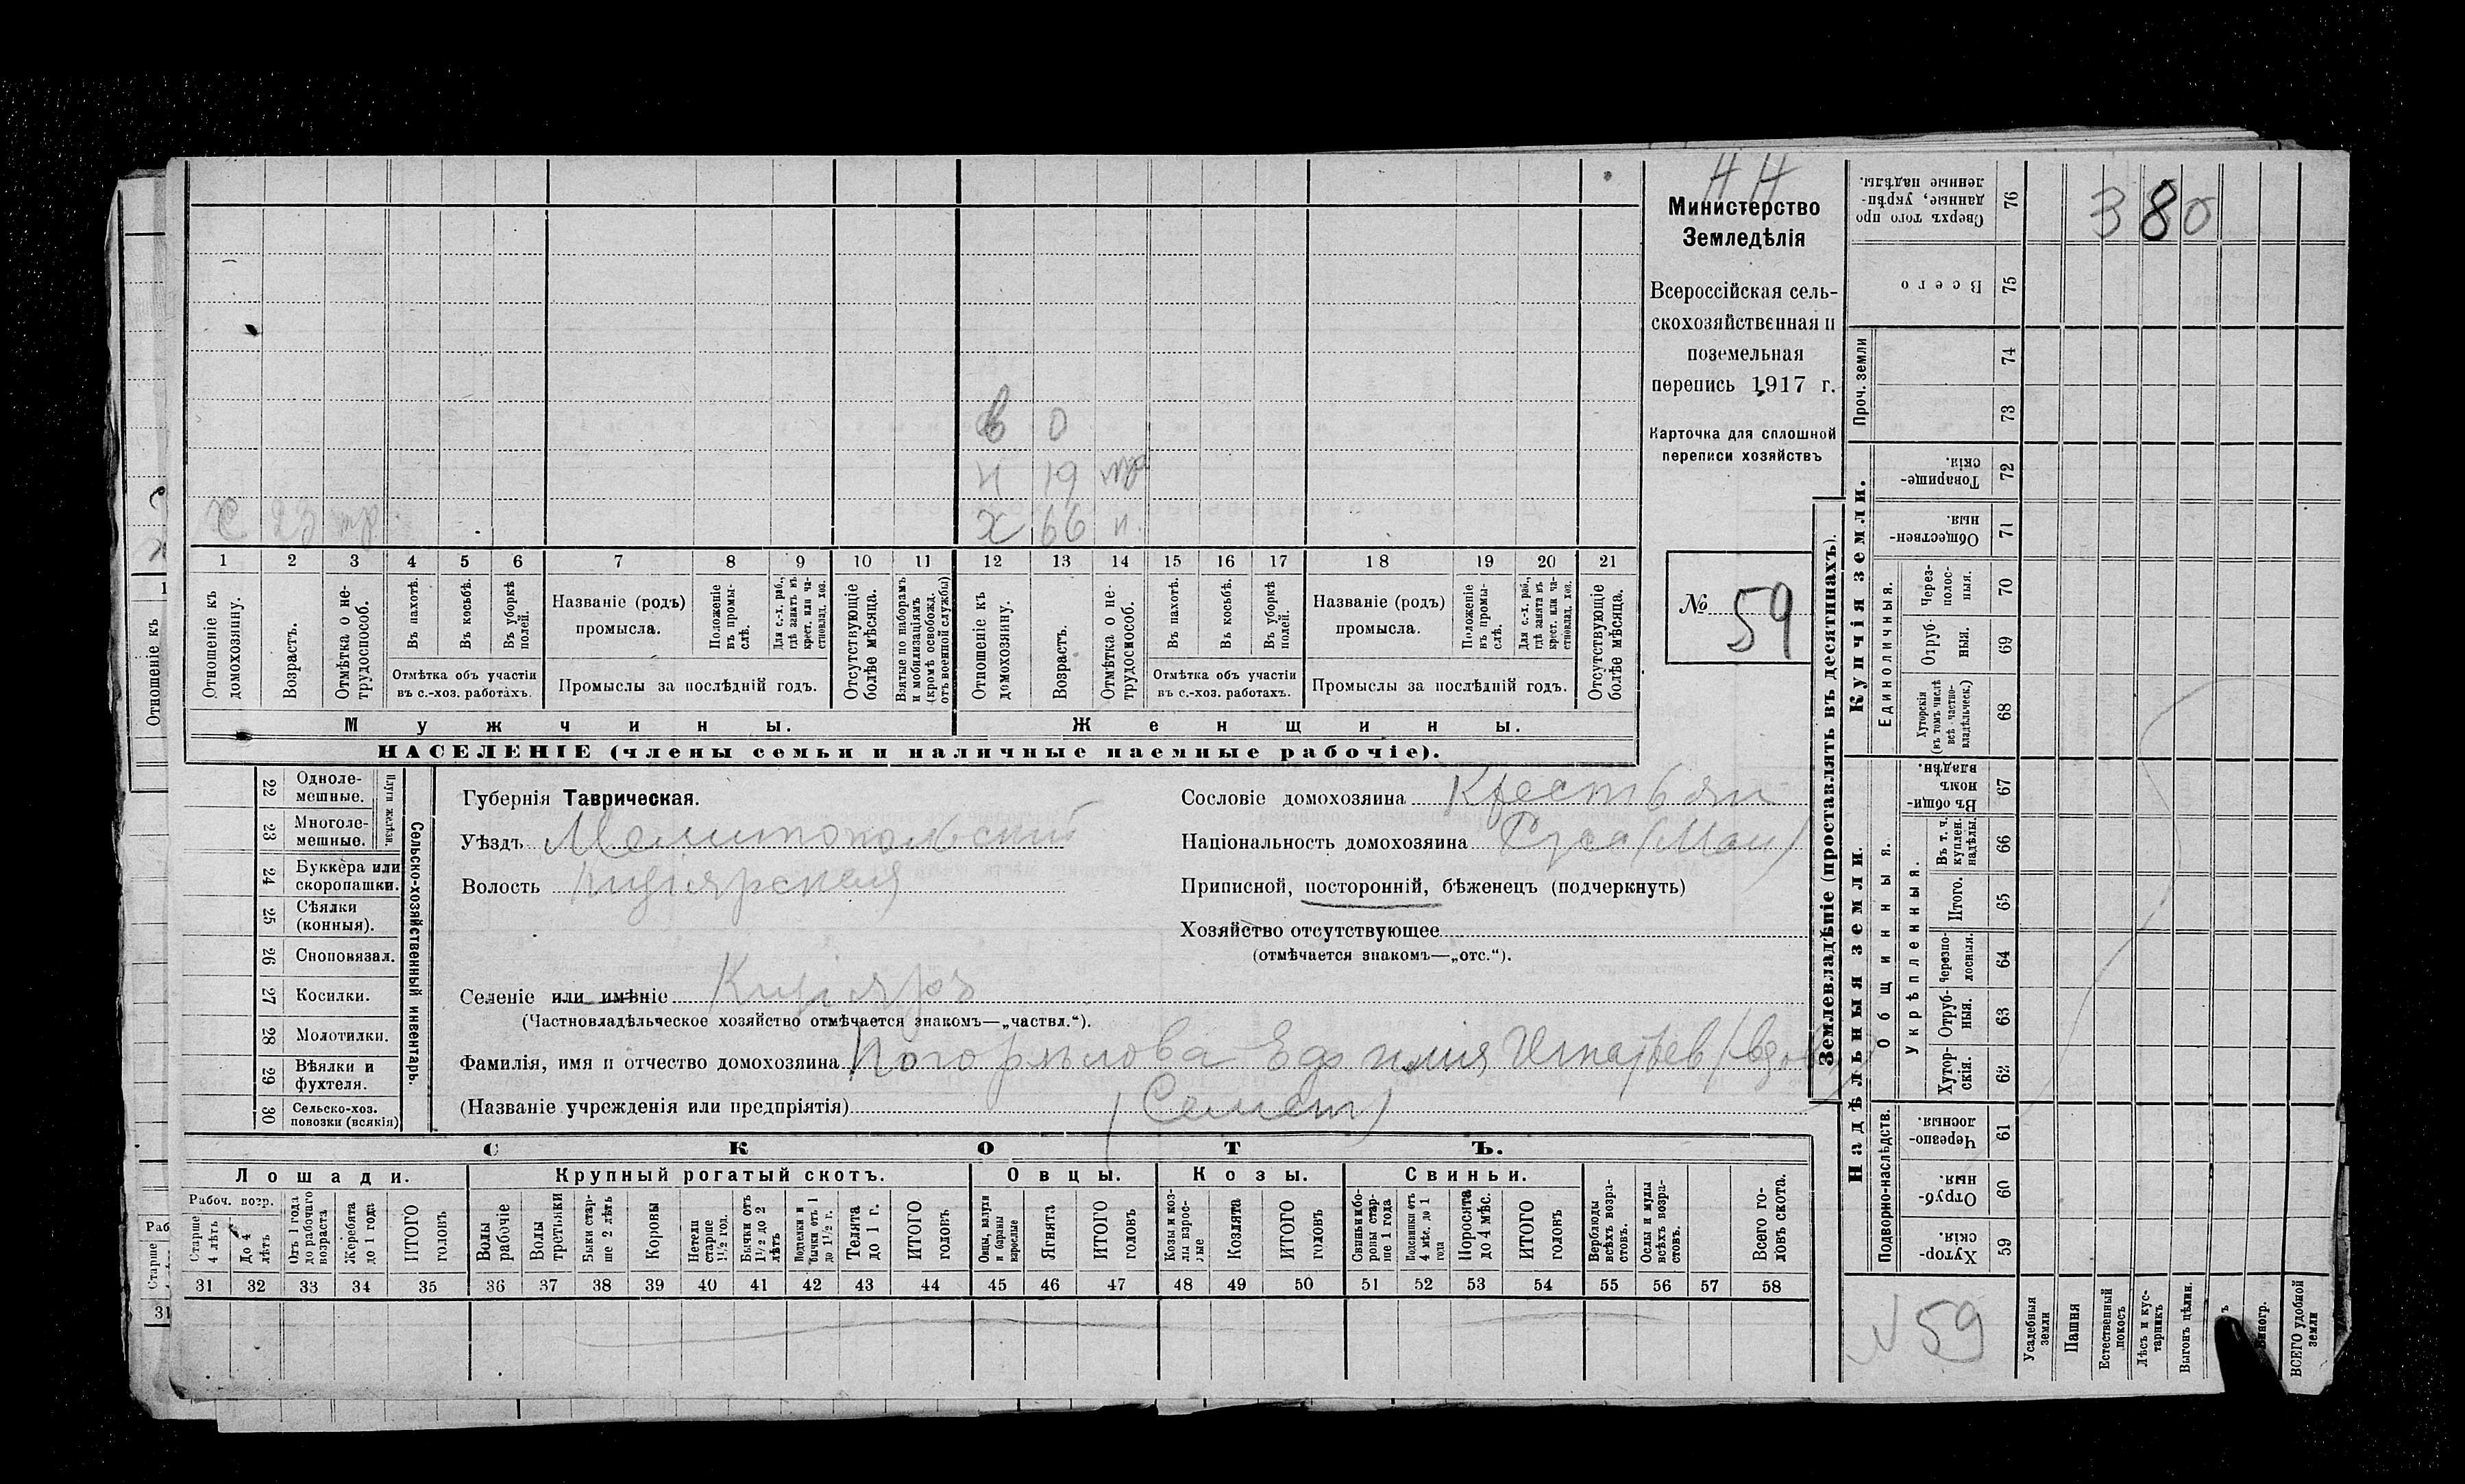 44
380
Министерство
Земледѣлія
Всероссійская сель-
скохозяйственная и
поземельная
перепись 1917 г.
Карточка для сплошной
переписи хозяйствъ
№ 59
в 0
н 19
х 23 тр. х 66 н.
1 2 3 4 5 6 7 8 9 10 11 12 13 14 15 16 17 18 19 20 21
Отношеніе къ домохозяину.
Возрастъ.
Отмѣтка о не-трудоспособ.
Въ пахотѣ.
Въ косьбѣ.
Въ уборкѣ полей.
Отмѣтка объ участіи
въ с.-хоз. работахъ.
Названіе (родъ)
промысла.
Положеніе въ промы-слѣ.
Для с.-х. раб., гдѣ занятъ въ крест. или ча-стновлад. хоз.
Промыслы за послѣдній годъ.
Отсутствующіе болѣе мѣсяца.
Взятые по наборамъ и мобилизаціямъ (кромѣ освобожд. отъ военной службы)
Отношеніе къ домохозяину.
Возрастъ.
Отмѣтка о не-трудоспособ.
Въ пахотѣ.
Въ косьбѣ.
Въ уборкѣ полей.
Отмѣтка объ участіи
въ с.-хоз. работахъ.
Названіе (родъ)
промысла.
Положеніе въ промы-слѣ.
Для с.-х. раб., гдѣ занята въ крест. или ча-стновлад. хоз.
Промыслы за послѣдній годъ.
Отсутствующіе болѣе мѣсяца.
Мужчины. Женщины.
НАСЕЛЕНІЕ (члены семьи и наличные наемные рабочіе).
Сельско-хозяйственный инвентарь.
Плуги желѣзн.
22 Одноле-мешные.
23 Многоле-мешные.
24 Буккера или скоропашки.
25 Сѣялки (конныя).
26 Сноповязал.
27 Косилки.
28 Молотилки.
29 Вѣялки и фухтеля.
30 Сельско-хоз. повозки (всякія)
Губернія Таврическая.
Уѣздъ Мелитопольский
Волость Кизіярская
Селеніе или имѣніе Кизіяръ
(Частновладѣльческое хозяйство отмѣчается знакомъ—„частвл.“).
Фамилія, имя и отчество домохозяина Погорѣлова Ефимия Игнатьев (вдова)
(Названіе учрежденія или предпріятія) (Семен)
Сословіе домохозяина Крестьян
Національность домохозяина Русс (Мал)
Приписной, посторонній, бѣженецъ (подчеркнуть)
Хозяйство отсутствующее
(отмѣчается знакомъ—„отс.“).
СКОТЪ.
Лошади. Крупный рогатый скотъ. Овцы. Козы. Свиньи.
Рабоч. возр.
Старше 4 лѣтъ
До 4 лѣтъ
Отъ 1 года до рабочаго возраста
Жеребята до 1 года
ИТОГО головъ
Волы рабочіе
Волы третьяки
Быки стар-ше 2 лѣтъ
Коровы
Нетели старше 1½ год.
Бычки отъ 1½ до 2 лѣтъ
Подтелки и бычки отъ 1 до 1½ г.
Телята до 1 г.
ИТОГО головъ
Овцы, валухи и бараны взрослые
Ягнята
ИТОГО головъ
Козы и коз-лы взрос-лые
Козлята
ИТОГО головъ
Свиньи и бо-ровы стар-ше 1 года
Подсвинки отъ 4 мѣс. до 1 года
Поросята до 4 мѣс.
ИТОГО головъ
Верблюды всѣхъ возра-стовъ.
Ослы и мулы всѣхъ возра-стовъ.
Всего го-ловъ скота.
31 32 33 34 35 36 37 38 39 40 41 42 43 44 45 46 47 48 49 50 51 52 53 54 55 56 57 58
Землевладѣніе (проставлять въ десятинахъ).
Надѣльныя земли.
Купчія земли.
Подворно-наслѣдств.
Общинныя.
Укрѣпленныя.
Единоличныя.
Проч. земли
Сверхъ того про данные, укрѣп-ленные надѣлы. 76
Всего 75
74
73
Товарище-скія. 72
Обществен-ныя. 71
Черезполос-ныя. 70
Отруб-ныя. 69
Хуторскія (въ томъ числѣ всѣ частно-владѣльческ.) 68
Въ общин-номъ владѣн. 67
Въ т. ч. куплен. надѣлы. 66
Итого. 65
Черезпо-лосныя. 64
Отруб-ныя. 63
Хутор-скія. 62
Черезпо-лосныя. 61
Отруб-ныя. 60
Хутор-скія. 59
№ 59
Усадебныя земли
Пашня
Естественный покосъ
Лѣсъ и кус-тарникъ
Выгонъ цѣлин.
Виногр.
ВСЕГО удобной земли
Отношеніе къ
1
Раб
Старше
31